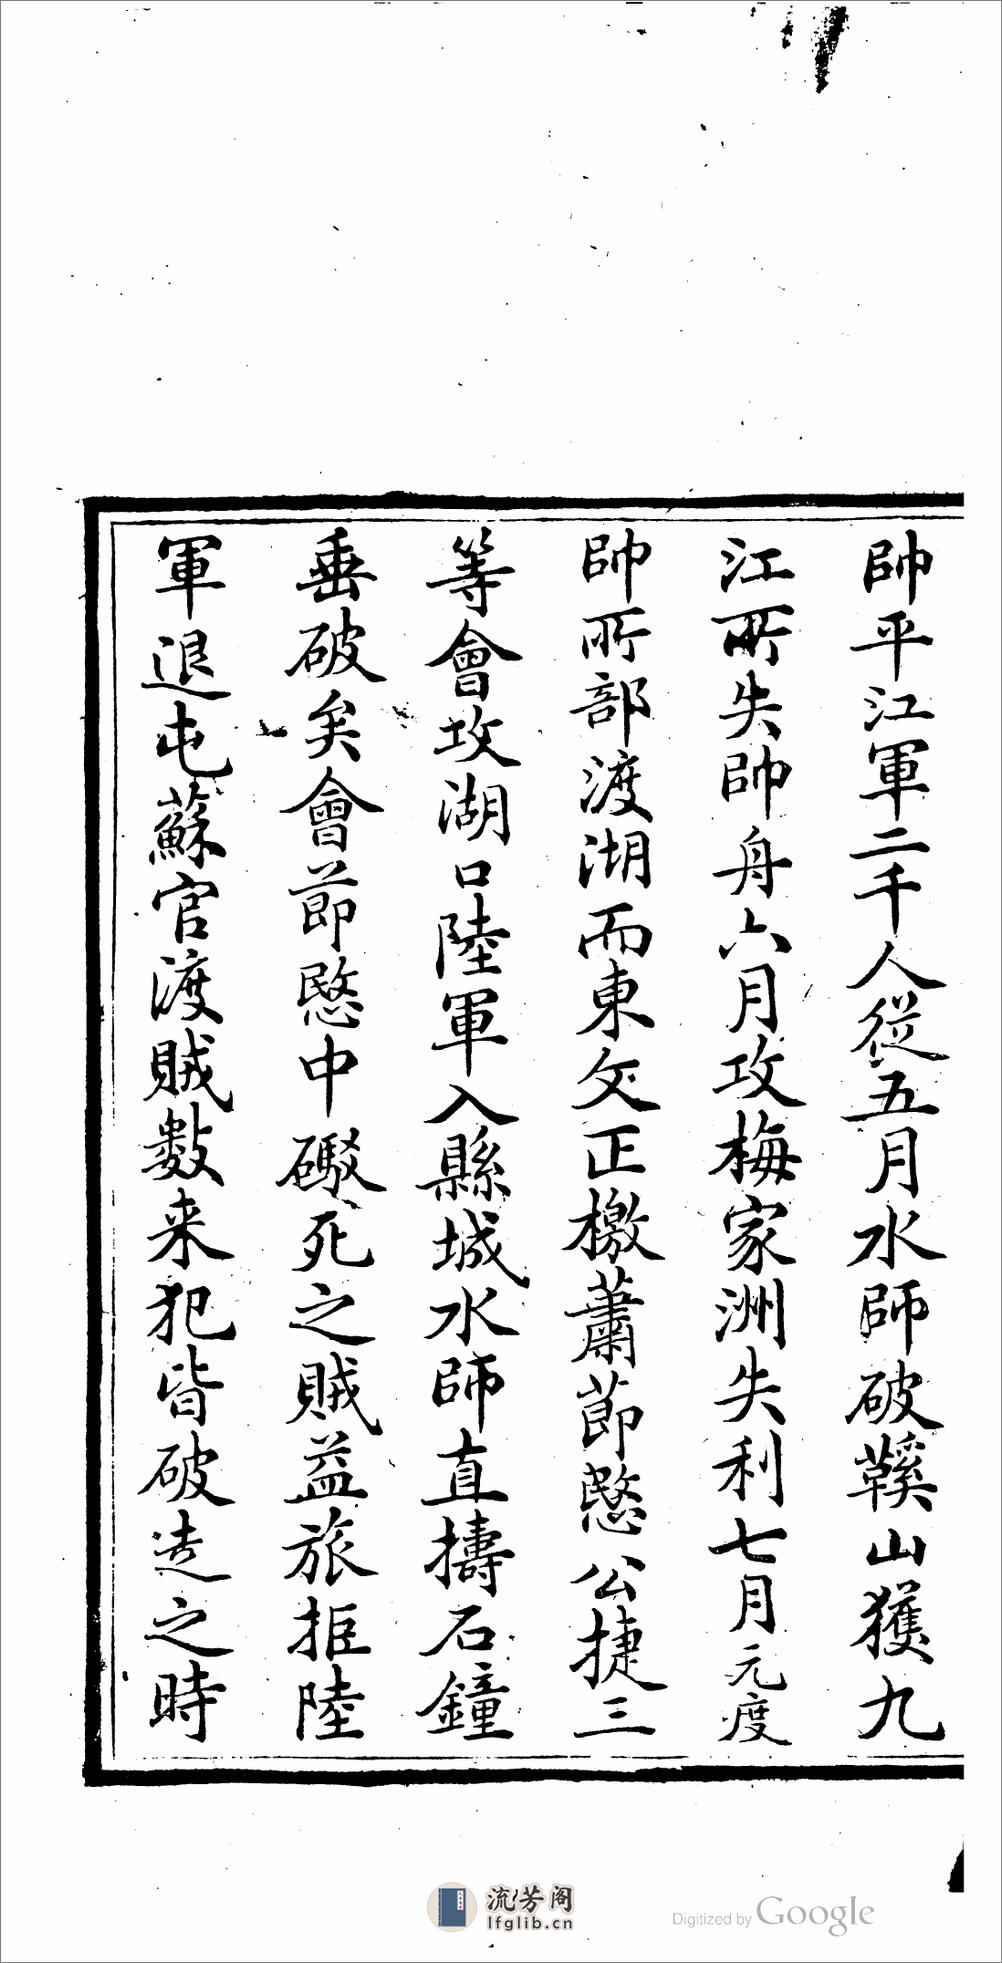 帥平江軍二千人從五月水師破鞵山獲九
江所失帥舟六月攻梅家洲失利七月元度
帥所部渡湖而東攵正檄蕭節愍公捷三
等會攻湖口陸軍入縣城水師直擣石鐘
垂破矣會節愍中礮死之賊益旅拒陸
軍退屯蘇官渡賊數来犯皆破走之時
流芳阁
lfglib.cn
Digitized by Google